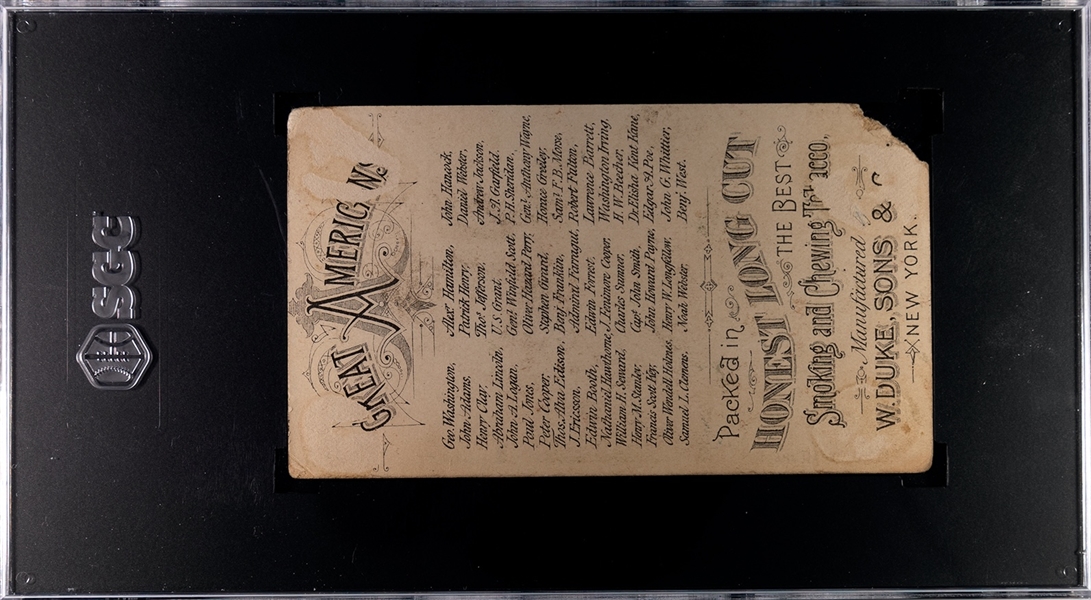 SGC
GREAT AMERICANS
Geo. Washington, Alexr Hamilton, John Hancock,
John Adams, Patrick Henry, Daniel Webster,
Henry Clay, Thos Jefferson, Andrew Jackson,
Abraham Lincoln, U.S. Grant, J.A. Garfield,
John A. Logan, Genl Winfield Scott, P.H. Sheridan,
Paul Jones, Oliver Hazard Perry, Genl Anthony Wayne,
Peter Cooper, Stephen Girard, Horace Greeley,
Thos. Alva Edison, Benj. Franklin, Saml F.B. Morse,
J. Ericsson, Admiral Farragut, Robert Fulton,
Edwin Booth, Edwin Forrest, Lawrence Barrett,
Nathaniel Hawthorne, J. Fenimore Cooper, Washington Irving,
William H. Seward, Charles Sumner, H.W. Beecher,
Henry M. Stanley, Capt John Smith, Dr Elisha Kent Kane,
Francis Scott Key, John Howard Payne, Edgar A. Poe,
Oliver Wendell Holmes, Henry W. Longfellow, John G. Whittier,
Samuel L. Clemens, Noah Webster, Benj. West.
Packed in
HONEST LONG CUT
THE BEST
Smoking and Chewing Tobacco,
Manufactured
W. DUKE, SONS & C
NEW YORK.